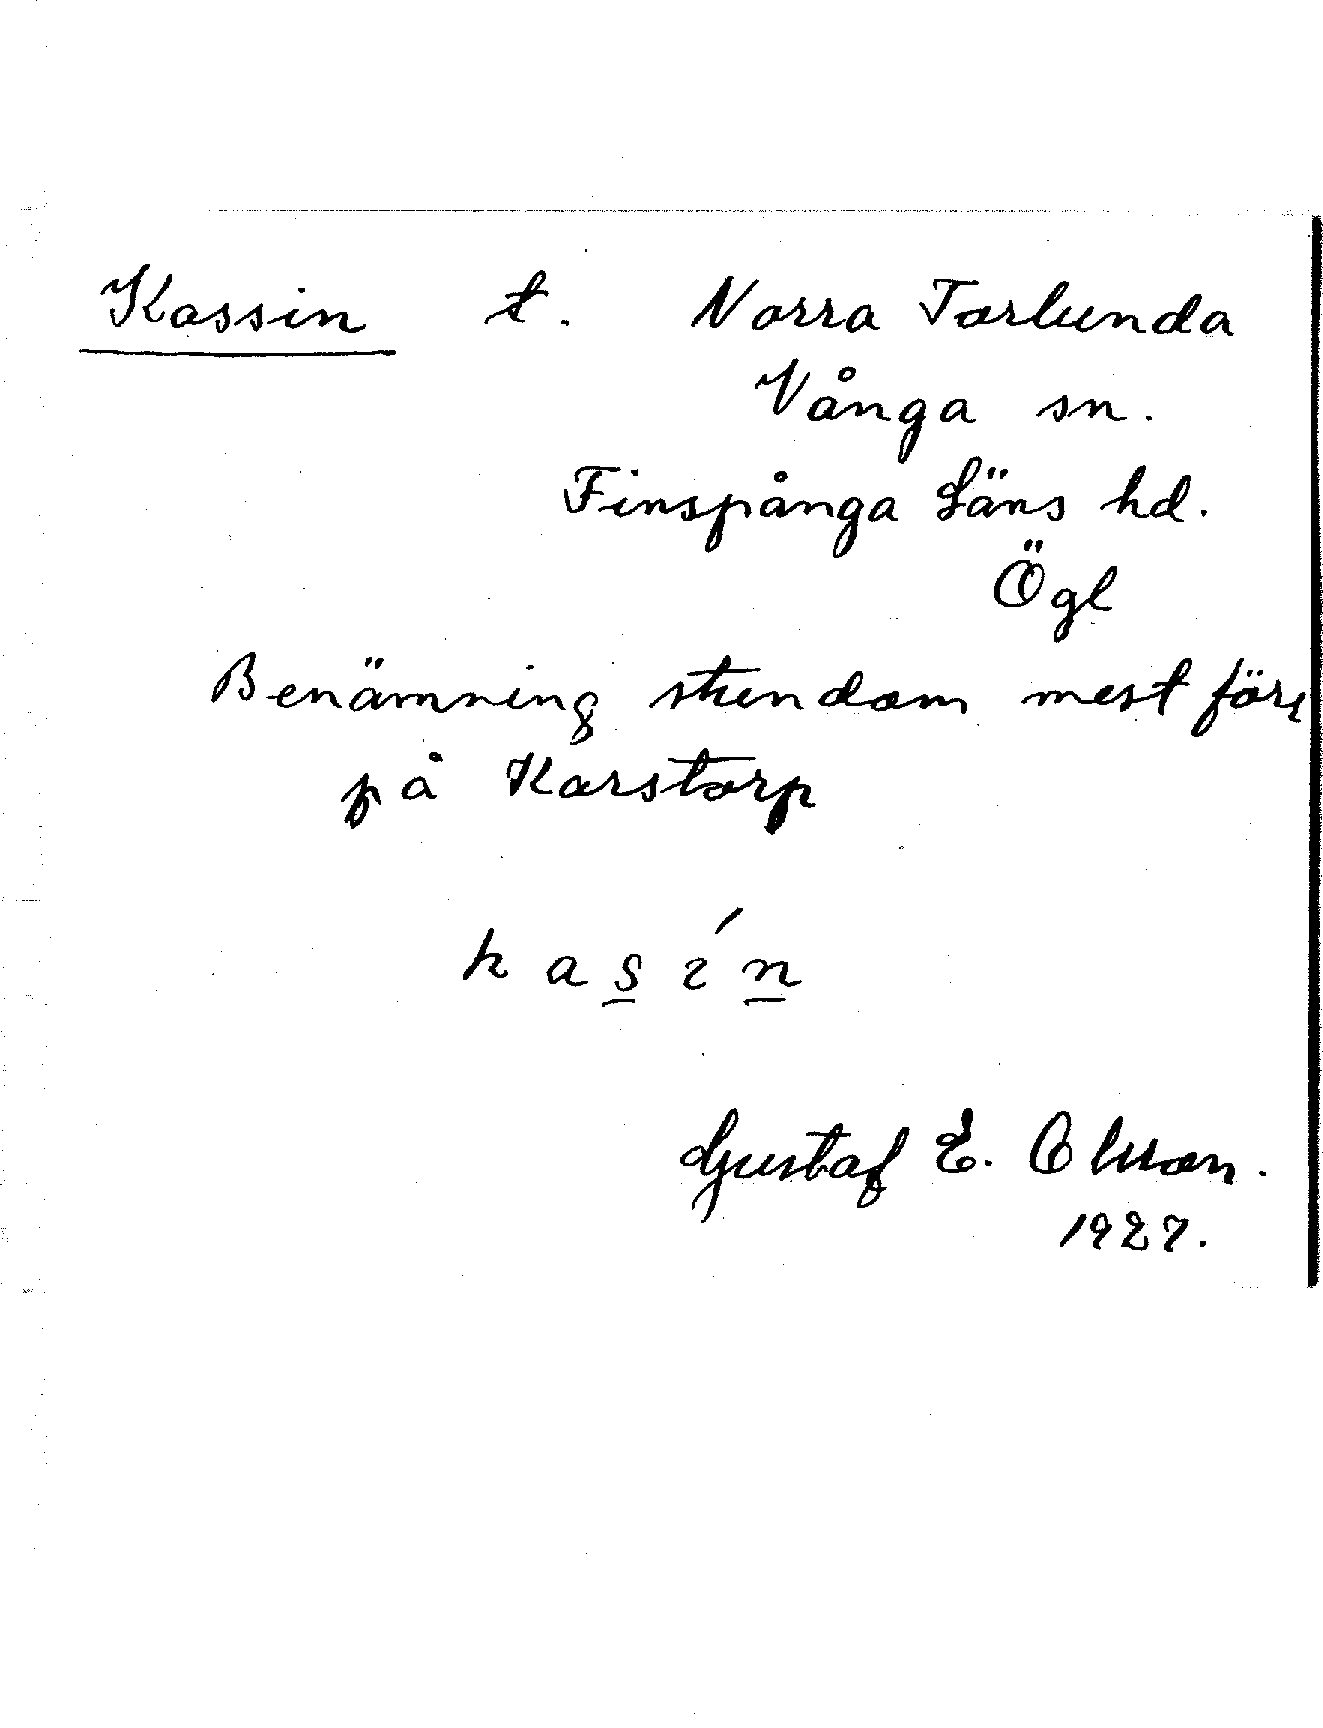 Kassin t. Norra Torlunda
Vånga sn.
Finspånga Läns hd.
Ögl
Benämning stundom mest förr
på Karstorp
kasín
Gustaf E. Olsson.
1927.